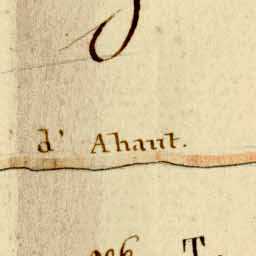 d' Ahaut.
T.